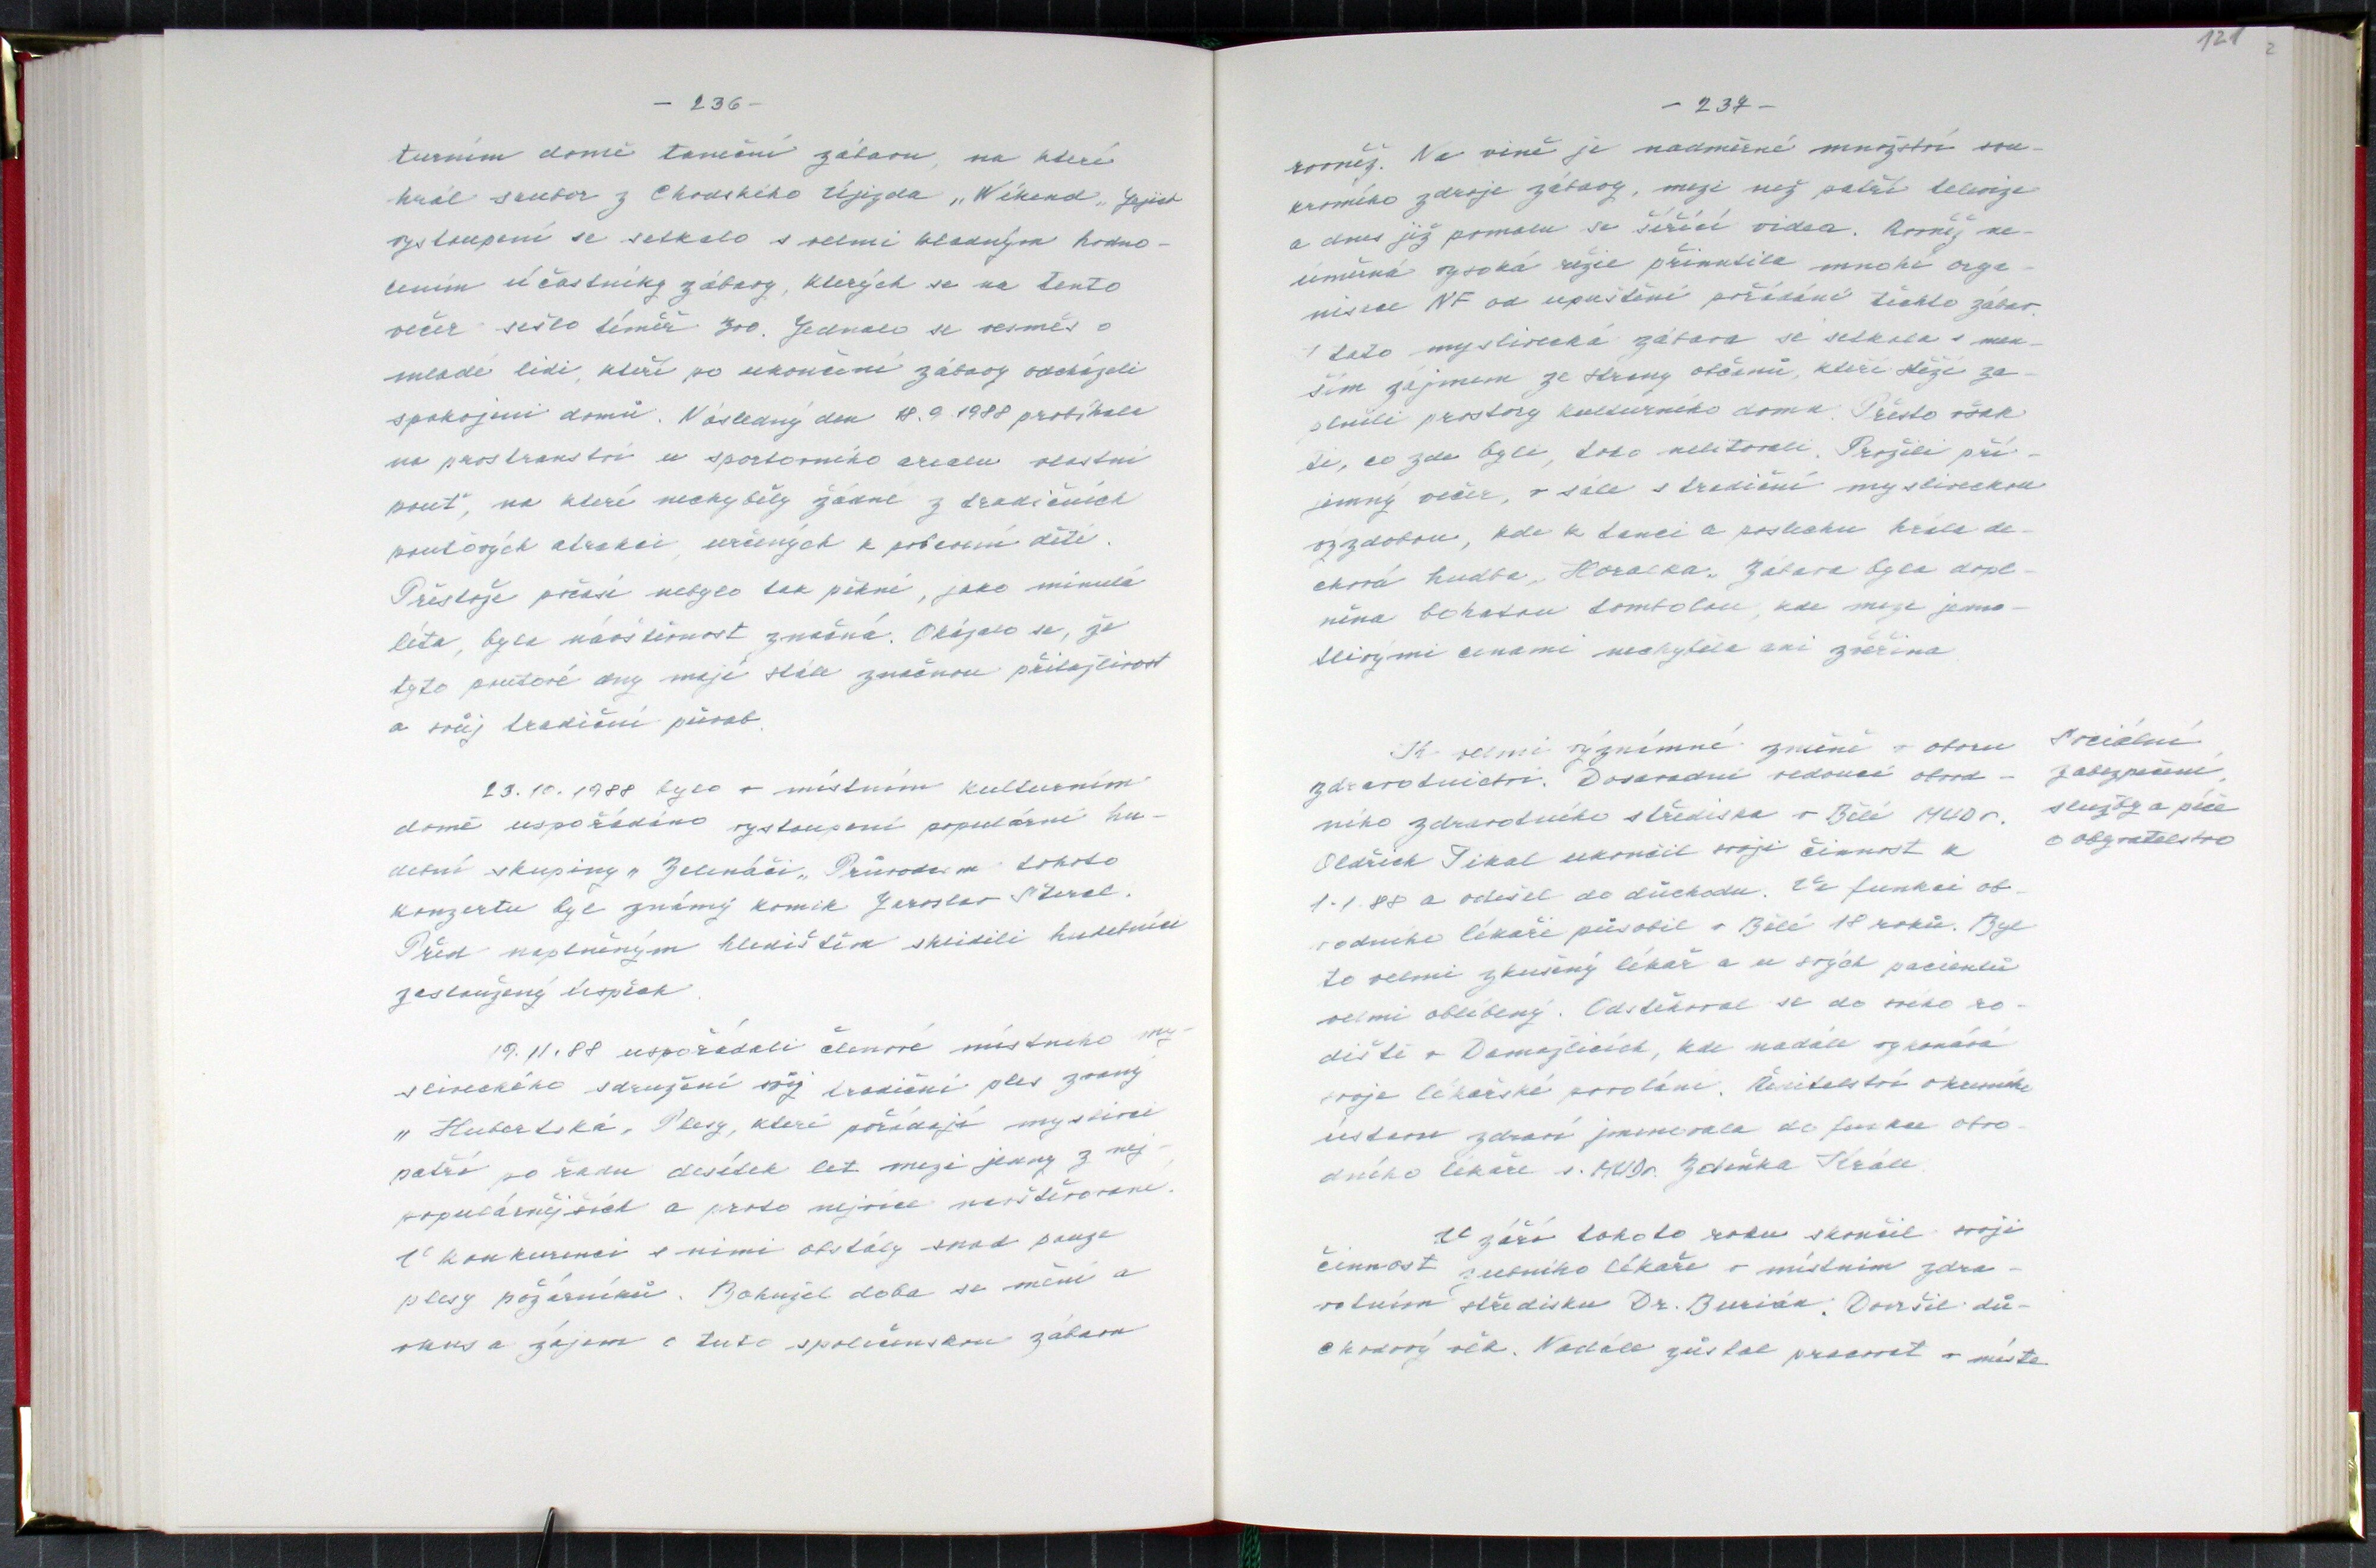 - 236 -
turním domě taneční zábavu, na které
hrál soubor z Chodského Újezda „Wikend„ Jejich
vystoupení se setkalo s velmi kladným hodno-
cením účastníky zábavy, kterých se na tento
večer sešlo téměř 300. Jednalo se vesměs o
mladé lidi, kteří po ukončení zábavy odcházeli
spokojeni domů. Následný den 18.9.1988 probíhala
na prostranství u sportovního arealu vlastní
pouť, na které nechyběly žádné z tradičních
pouťových atrakcí, určených k pobavení dětí.
Přestože počasí nebylo tak pěkné, jako minulá
léta, byla návštěvnost značná. Okázalo se, že
tyto pouťové dny mají stále značnou přitažlivost
a svůj tradiční půvab.
23.10.1988 bylo v místním kulturním
domě uspořádáno vystoupení populární hu-
dební skupiny „Zelenáči„ Průvodcem tohoto
konzertu byl známý komik Jaroslav Štercl.
Před naplněným hledištěm sklidili hudebníci
zasloužený úspěch.
19.11.88 uspořádali členové místního my-
sliveckého sdružení svůj tradiční ples zvaný
„Hubertská„ Plesy, které pořádají myslivci
patří po řadu desítek let mezi jedny z nej-
populárnějších a proto nejvíce navštěvované.
V konkurenci s nimi obstály snad pouze
plesy požárníků. Bohužel doba se mění a
vkus a zájem o tuto společenskou zábavu
121
2
- 237 -
rovněž. Na vině je nadměrné množství sou-
kromého zdroje zábavy, mezi než patří televize
a dnes již pomalu se šířící videa. Rovněž ne-
úměrná vysoká režie přinutila mnohé orga-
nisace NF od upuštění pořádání těchto zábav.
I tato myslivecká zábava se setkala s men-
ším zájmem ze strany občanů, kteří stěží za-
plnili prostory kulturního domu. Přesto však
ti, co zde byli, toho nelitovali. Prožili pří-
jemný večer, v sále s tradiční mysliveckou
výzdobou, kde k tanci a poslechu hrála de-
chová hudba „Horalka„ Zábava byla dopl-
něna bohatou tombolou, kde mezi jedno-
tlivými cenami nechyběla ani zvěřina
Sociální
zabezpečení,
služby a péče
o obyvatelstvo
K velmi význímné změně v oboru
zdravotnictví. Dosavadní vedoucí obvod-
ního zdravotního střediska v Bělé MUDr.
Oldřich Tikal ukončil svoji činnost k
1.1.88 a odešel do důchodu. Ve funkci ob-
vodního lékaře působil v Bělé 18 roků. Byl
to velmi zkušený lékař a u svých pacientů
velmi oblíbený. Odstěhoval se do svého ro-
diště v Domažlicích, kde nadále vykonává
svoje lékařské povolání. Ředitelství okresního
ústavu zdraví jmenovala do funkce obvo-
dního lékaře s. MUDr. Zdeňka Krále.
V září tohoto roku skončil svoji
činnost zubního lékaře v místním zdra-
votním středisku Dr. Burián. Dovršil dů-
chodový věk. Nadále zůstal pracovat v místě